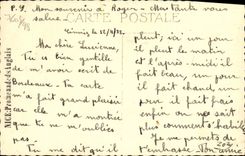 P.S. Mon souvenir à Roger - Ma tante vous
salue.
CARTE POSTALE
Ma chère Lucienne,
Tu es bien gentille
de m'avoir écrit de
Bordeaux. Ta carte
m'a fait grand plaisir
car elle m'a montré
que tu ne m'oublies
pas.
Tu me dis qu'il
pleut; ici un jour
il pleut le matin
et l'après-midi il
fait beau, un jour
il fait chaud, un
jour il fait froid
enfin on ne sait
plus comment s'habiller
Je me permets de
t'embrasser Ton amie
NICE Promenade des Anglais